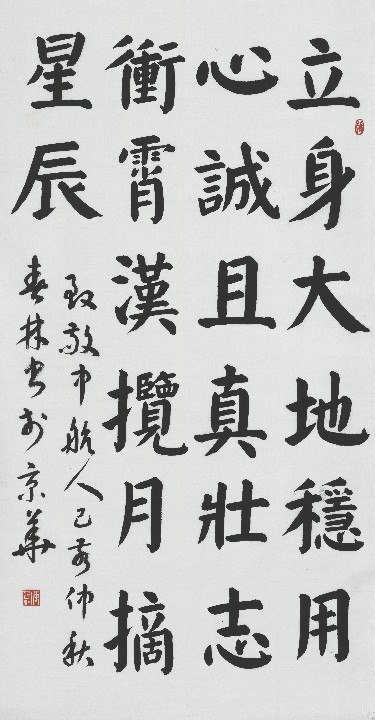 立身大地穩用
心誠且真壯志
衝霄漢攬月摘
星辰
致敬中航人己亥仲秋
春林書於京華